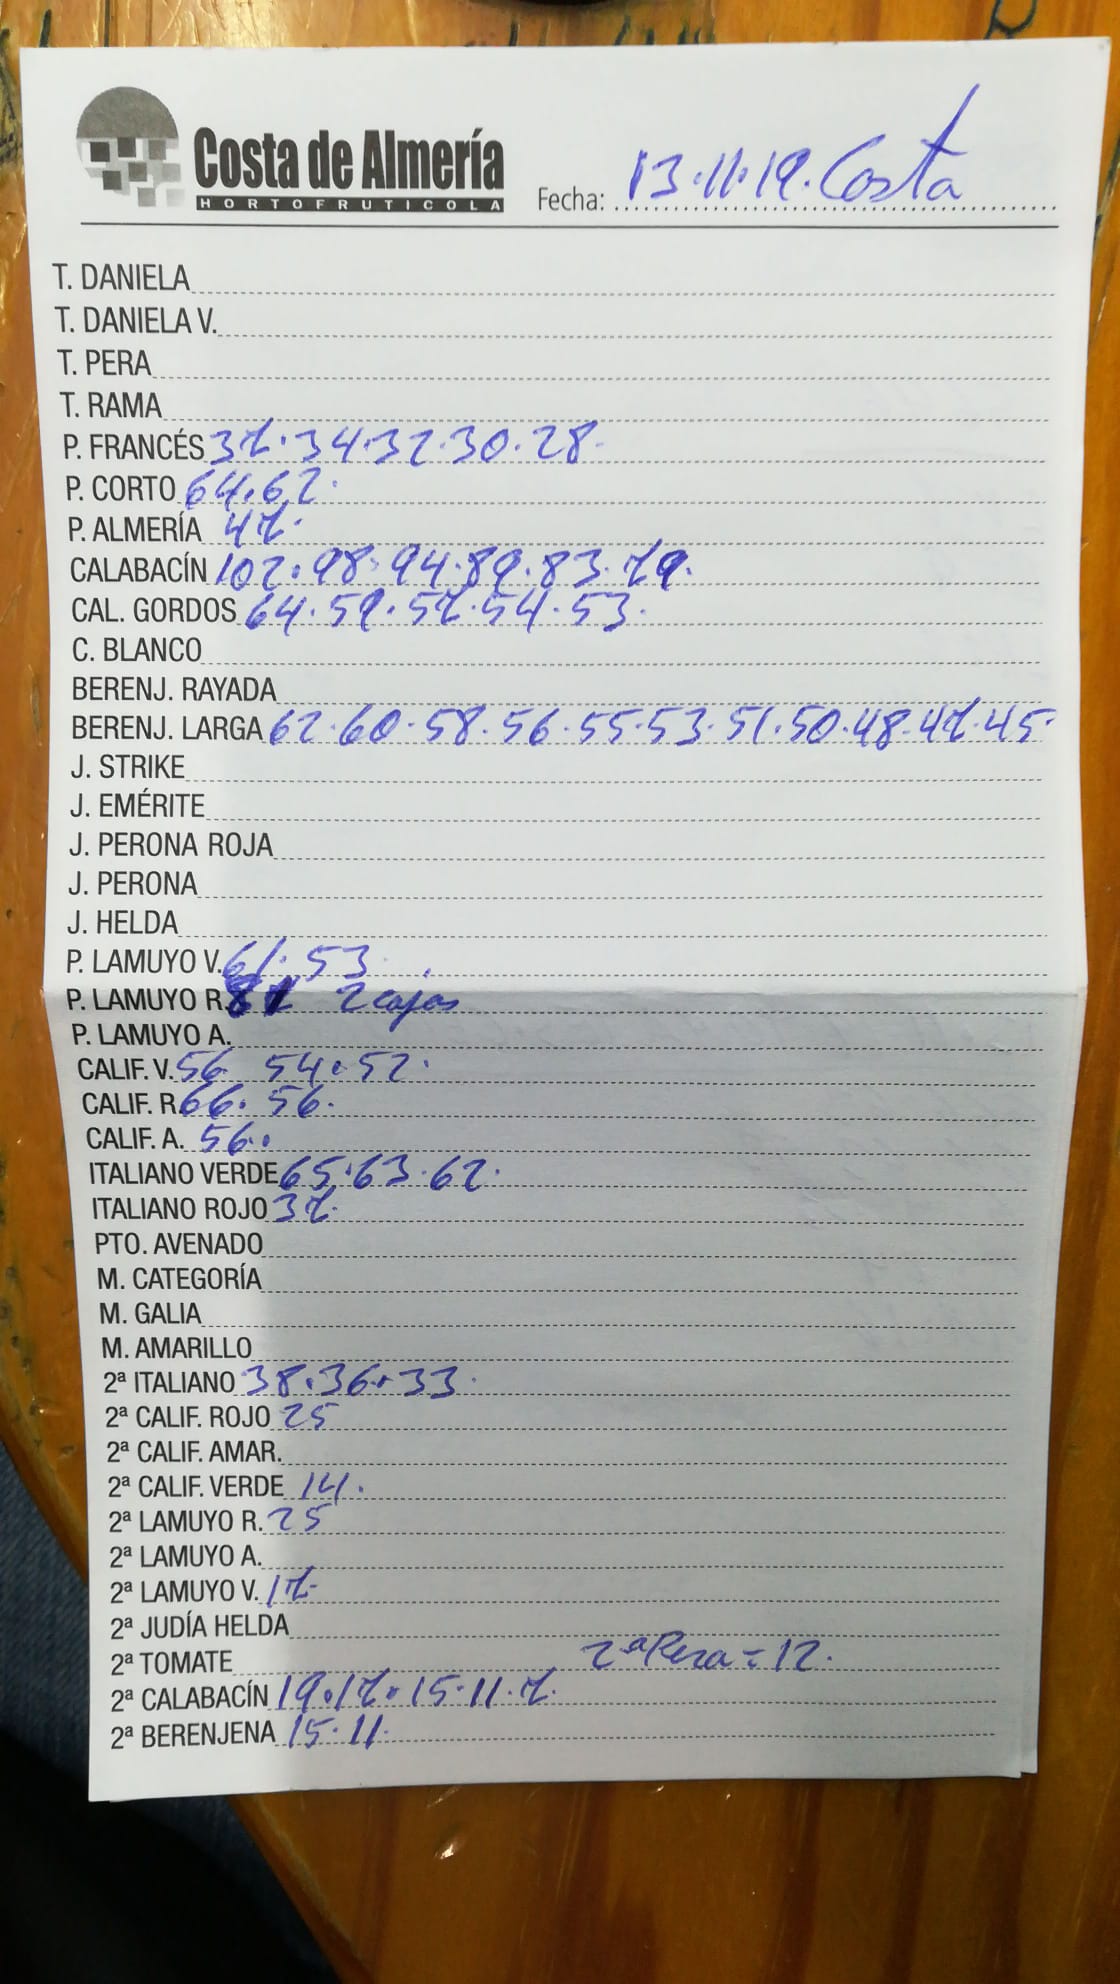 Costa de Almería
HORTOFRUTICOLA
Fecha: 13.11.19. Costa
T. DANIELA
T. DANIELA V.
T. PERA
T. RAMA
P. FRANCÉS 37.34.32.30.28
P. CORTO 64.62.
P. ALMERÍA 47.
CALABACÍN 102.98.94.89.83.79.
CAL. GORDOS 64.59.57.54.53.
C. BLANCO
BERENJ. RAYADA
BERENJ. LARGA 62.60.58.56.55.53.51.50.48.47.45.
J. STRIKE
J. EMÉRITE
J. PERONA ROJA
J. PERONA
J. HELDA
P. LAMUYO V. 61.53.
P. LAMUYO R. 2 cajas
P. LAMUYO A.
CALIF. V. 56 54.52.
CALIF. R. 66.56.
CALIF. A. 56.
ITALIANO VERDE 65.63.62.
ITALIANO ROJO 37.
PTO. AVENADO
M. CATEGORÍA
M. GALIA
M. AMARILLO
2ª ITALIANO 38.36.33.
2ª CALIF. ROJO 25
2ª CALIF. AMAR.
2ª CALIF. VERDE 14.
2ª LAMUYO R. 25
2ª LAMUYO A.
2ª LAMUYO V. 17.
2ª JUDÍA HELDA
2ª TOMATE 2ª Pera = 12.
2ª CALABACÍN 19.17.15.11.7.
2ª BERENJENA 15.11.